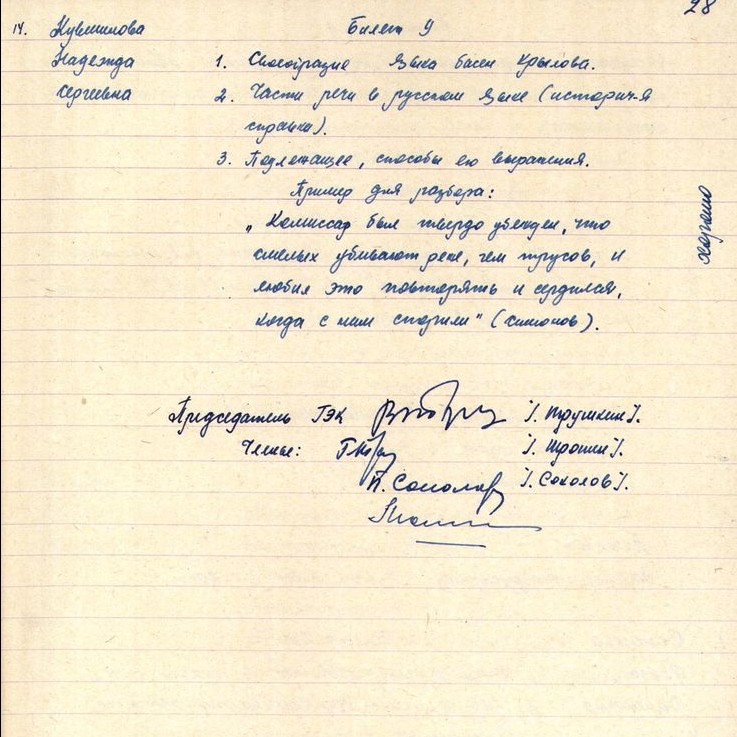 28
14. Кувшинова Билет 9
Надежда 1. Своеобразие языка басен Крылова.
Сергеевна 2. Части речи в русском языке (историч-я
справка).
3. Подлежащее, способы его выражения.
Пример для разбора:
„Комиссар был твердо убежден, что
смелых убивают реже, чем трусов, и
любил это повторять и сердился,
когда с ним спорили" (Симонов).
хорошо
Председатель ГЭК /. Трушкин /.
Члены: /. Трошин /.
П. Соколов /. Соколов /.